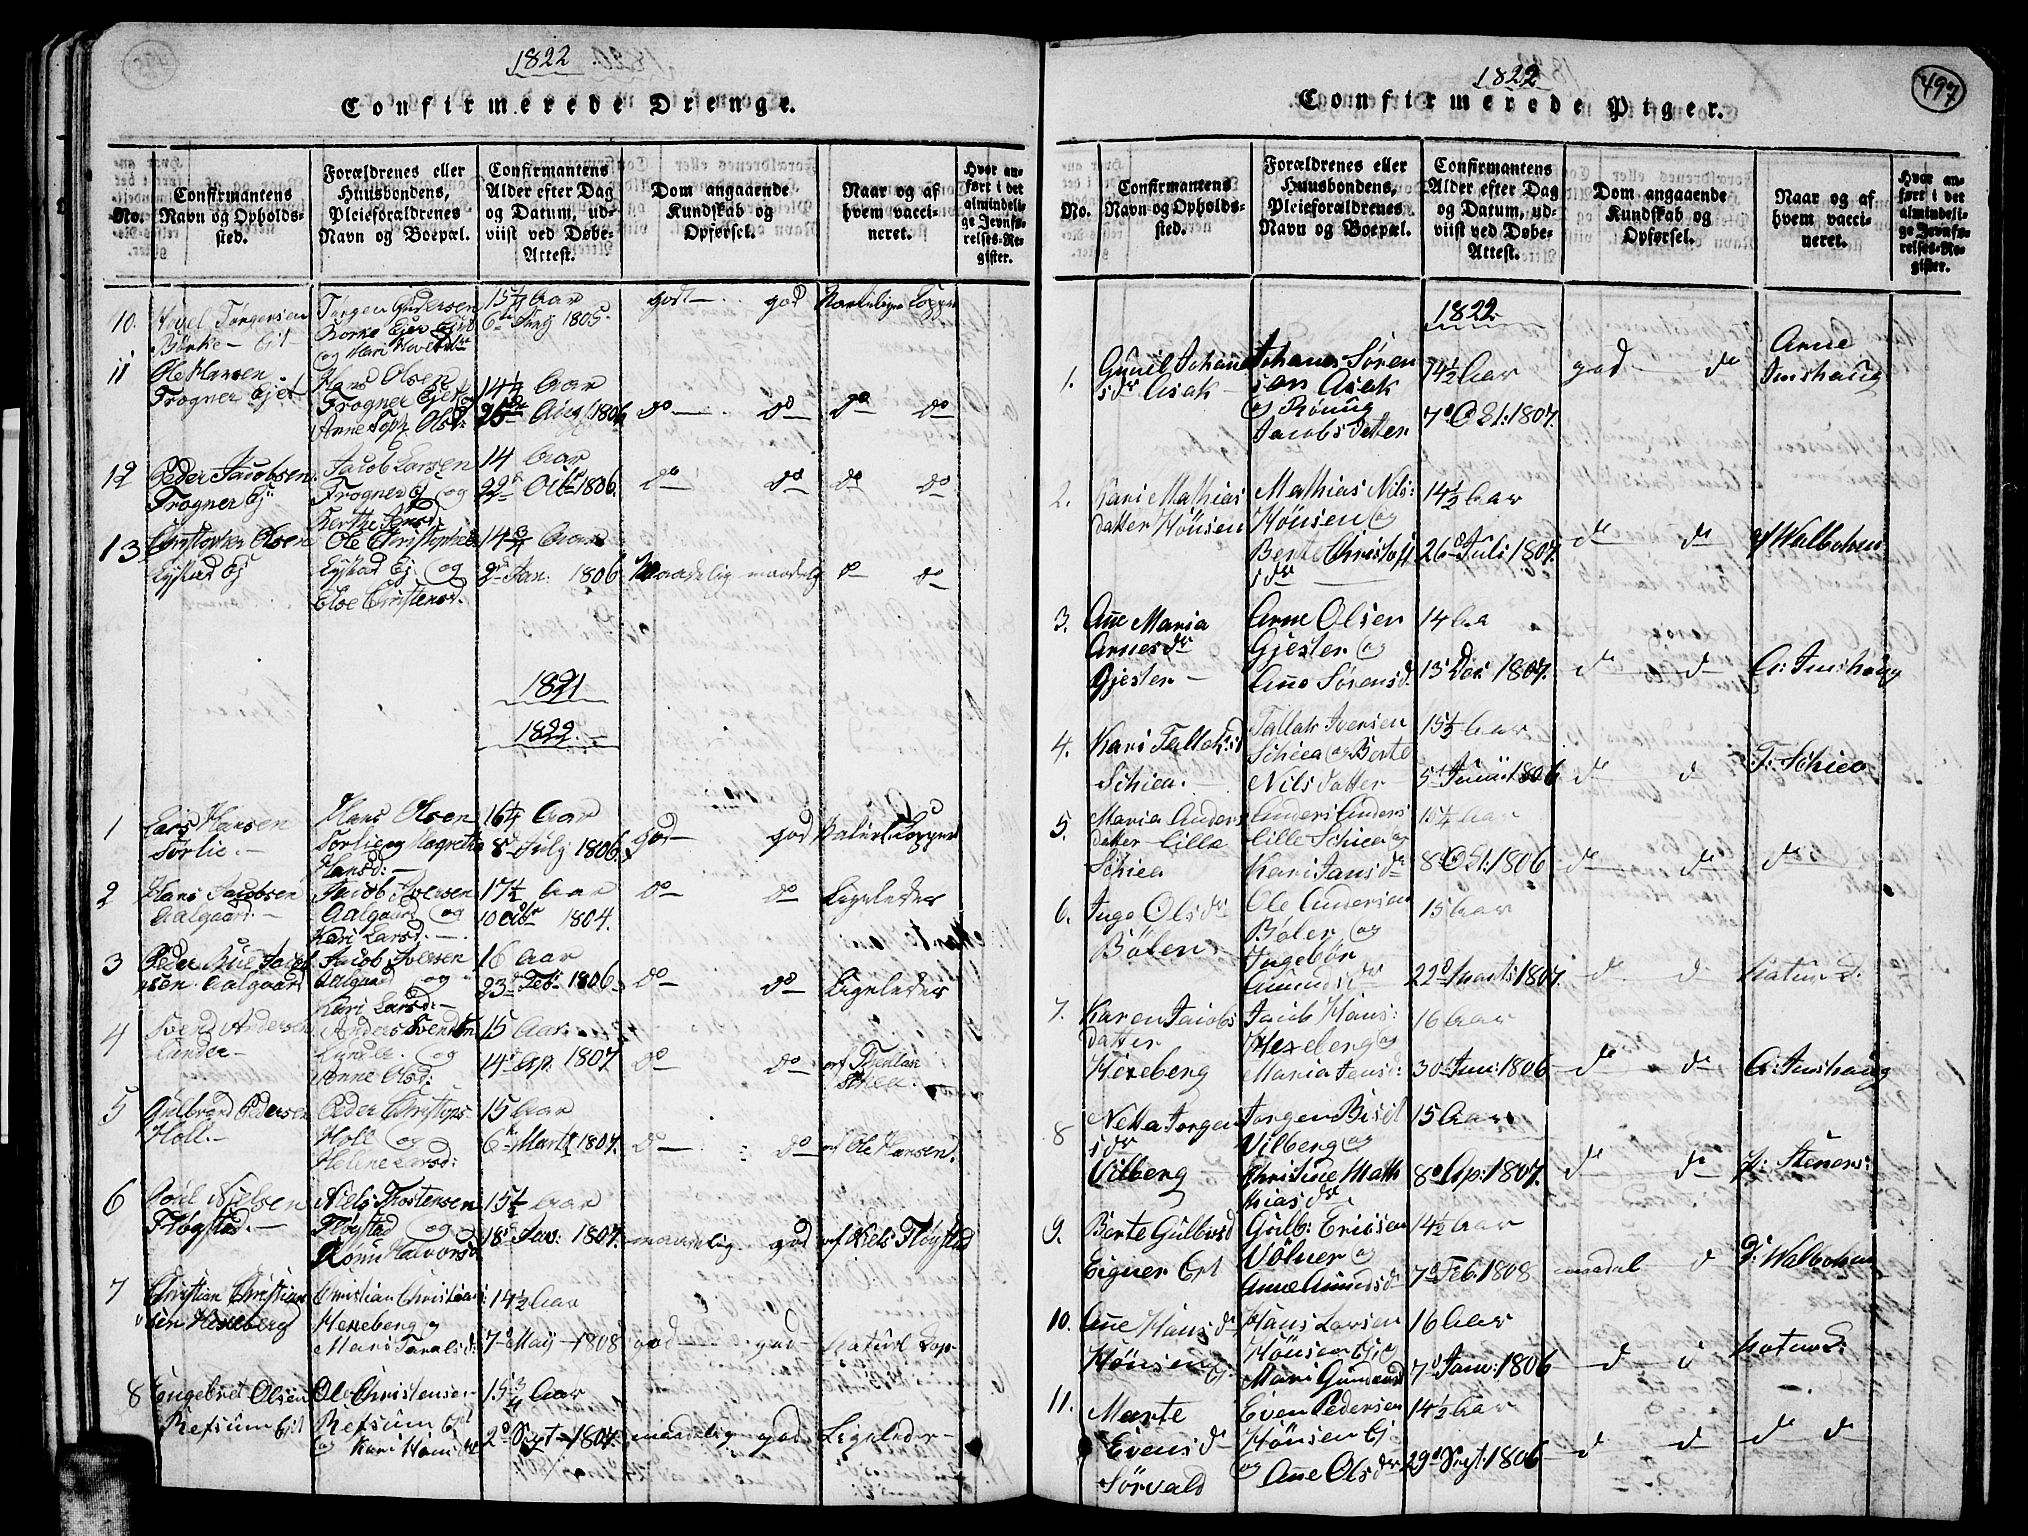 1822
Confirmerede Drenge.
No.
Confirmantens
Navn og Opholds-
sted.
Forældrenes eller
Huusbondens,
Pleieforældrenes
Navn og Boepæl.
Confirmantens
Alder efter Dag
og Datum, ud-
viist ved Døbe-
Attest.
Dom angaaende
Kundskab og
Opførsel.
Naar og af
hvem vacci-
neret.
Hvor an-
ført i det
almindeli-
ge Jevnfø-
relses-Re-
gister.
10. Torgersen
Torgen Gudersen
Aar
1805
godt god
11 Ole Hansen
Trogner Ejet
Hans Olsen
Trogner Ejet
14 1/2 Aar
26de Aug 1806
do do do do
12 Peder Jacobsen
Trogner Ej
Jacob Larsen
Trogner Ej og
14 Aar
22de Octbr 1806.
do do do do
13 Christopher Olsen
Eystad Ej
Ole Christophers
Eystad Ej. og
Christensd.
14 3/4 Aar
2de Jan: 1806
Maadelig maadelig do do
1821
1822.
1 Lars Hansen
Sørlie.
Hans Olsen
Sørlie og Magrethe
Hansd:
16 1/4 Aar
8de July 1806.
god god
2 Hans Jacobsen
Aalgaard.
Jacob Iversen
Aalgaard og
Kari Larsd.
17 1/2 Aar
10 Octbr 1804.
do do Ligeledes
3 Peder Jacob
sen Aalgaard
Jacob Iversen
Aalgaard og
Kari Larsd:
16 Aar
23de Feb: 1806
do do Ligeledes
4 Svend Andersen
Lunder
Anders Svendsen
Lunder og
Anne Olsd:
15 Aar
14de Ap. 1807
do do
5 Gulbrand Pedersen
Holl.
Peder Christophs
Holl og
Helene Larsd:
15 Aar
6te Marts 1807.
do do af Ole Hansen.
6 Poul Nielsen
Fløgstad.
Niels Thostensen
Fløgstad og
Halvorsd
15 1/2 Aar
18de Jan: 1807.
maadelig. god af Niels Fløgstad
7 Christian Christian
sen Hexeberg
Christian Christians:
Hexeberg og
14 1/2 Aar
7de May 1808
god god Naturl Kop
8 Engebret Olsen
Refsum Eit
Ole Christensen
Refsum Eit
og Kari Hans dtr
15 3/4 Aar
2de Sept
maadelig god Ligeledes
497
1822
Confirmerede Piger.
No.
Confirmantens
Navn og Opholds-
sted.
Forældrenes eller
Huusbondens,
Pleieforældrenes
Navn og Boepæl.
Confirmantens
Alder efter Dag
og Datum, ud-
viist ved Døbe-
Attest.
Dom angaaende
Kundskab og
Opførsel.
Naar og af
hvem vacci-
neret.
Hvor an-
ført i det
almindeli-
ge Jevnfø-
relses-Re-
gister.
1822
1. Gunil Johane
sdr Asak
Johanes Søren
sen Asak
og Rønnug
Jacobs datter
14 1/2 Aar
7de Oct: 1807.
god do
Arne
Imshaug
2. Kari Mathias
datter Hönsen
Mathias Nils:
Hönsen og
Berte Christofs
sdr
14 1/2 Aar
26de Juli 1807.
do do
af Walbohen
3. Ane Maria
Arnesdr
Gjesten
Arne Olsen
Gjesten og
Ane Sørensd.
14 Aar
13 Dec: 1807.
do d
A: Imshaug
4. Kari Tallaksd
Schiea.
Tallak Iversen
Schiea og Berte
Nils datter
15 1/2 Aar
5de Juni: 1806
do d
T: Schiea
5. Maria Anders
datter Lille
Schiea
Anders Anders
Lille Schiea og
Kari Jansdr
15 1/4 Aar
8de Oct: 1806
d d d
6. Inge Olsdr
Bölen
Ole Andersen
Böler og
Ingebör
Amundsdr
15 Aar
22de Marts 1807.
d d
7. Karen Jacobs
datter
Hexeberg
Jacob Hans:
Hexeberg og
Maria Jensd:
16 Aar
30de Jun: 1806
d d
A: Imshaug
8 Netta Jorgen
sdr
Vilberg
Jorgen
Vilberg og
Christine Math
hias dr
15 Aar
8de Ap: 1807.
d d
9. Berte Gulbrsd
Eigner
Gulb: Ericsen
Völner og
Ane Amunds d
14 1/2 Aar
7de Feb. 1808
maadel d
Walbohen
10. Ane Hans dr
Hönsen
Hans Larsen
Hönsen
16 Aar
7de Janu: 1806
d d
11. Marte
Evens dr
Sörvald
Even Pedersen
Hönsen Ej:
og Ane Olsdr
14 1/2 Aar
29de Sept: 1806
d d d d